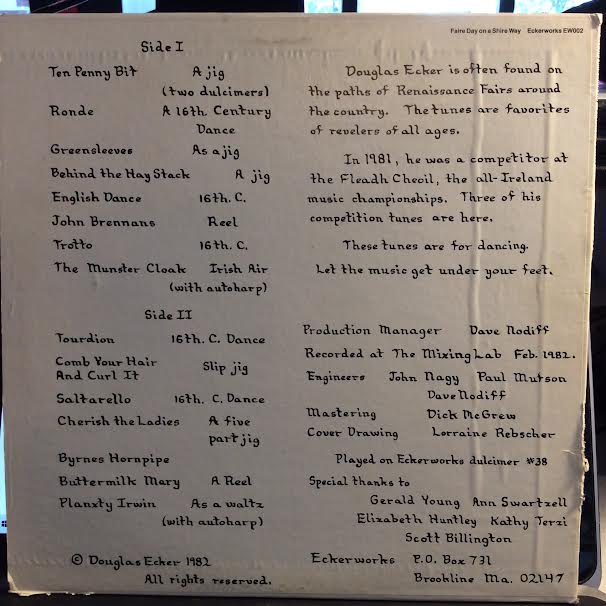 Faire Day on a Shire Way Eckerworks EW002
Side I
Ten Penny Bit A jig
(two dulcimers)
Ronde A 16th. Century
Dance
Greensleeves As a jig
Behind the Hay Stack A jig
English Dance 16th. C.
John Brennans Reel
Trotto 16th. C.
The Munster Cloak Irish Air
(with autoharp)
Side II
Tourdion 16th. C. Dance
Comb Your Hair
And Curl It Slip jig
Saltarello 16th. C. Dance
Cherish the Ladies A five
part jig
Byrnes Hornpipe
Buttermilk Mary A Reel
Planxty Irwin As a waltz
(with autoharp)
© Douglas Ecker 1982
All rights reserved.
Douglas Ecker is often found on
the paths of Renaissance Fairs around
the country. The tunes are favorites
of revelers of all ages.
In 1981, he was a competitor at
the Fleadh Cheoil, the all-Ireland
music championships. Three of his
competition tunes are here.
These tunes are for dancing.
Let the music get under your feet.
Production Manager Dave Nodiff
Recorded at The Mixing Lab Feb. 1982.
Engineers John Nagy Paul Mutson
Dave Nodiff
Mastering Dick McGrew
Cover Drawing Lorraine Rebscher
Played on Eckerworks dulcimer #38
Special thanks to
Gerald Young Ann Swartzell
Elizabeth Huntley Kathy Terzi
Scott Billington
Eckerworks P.O. Box 731
Brookline Ma. 02147